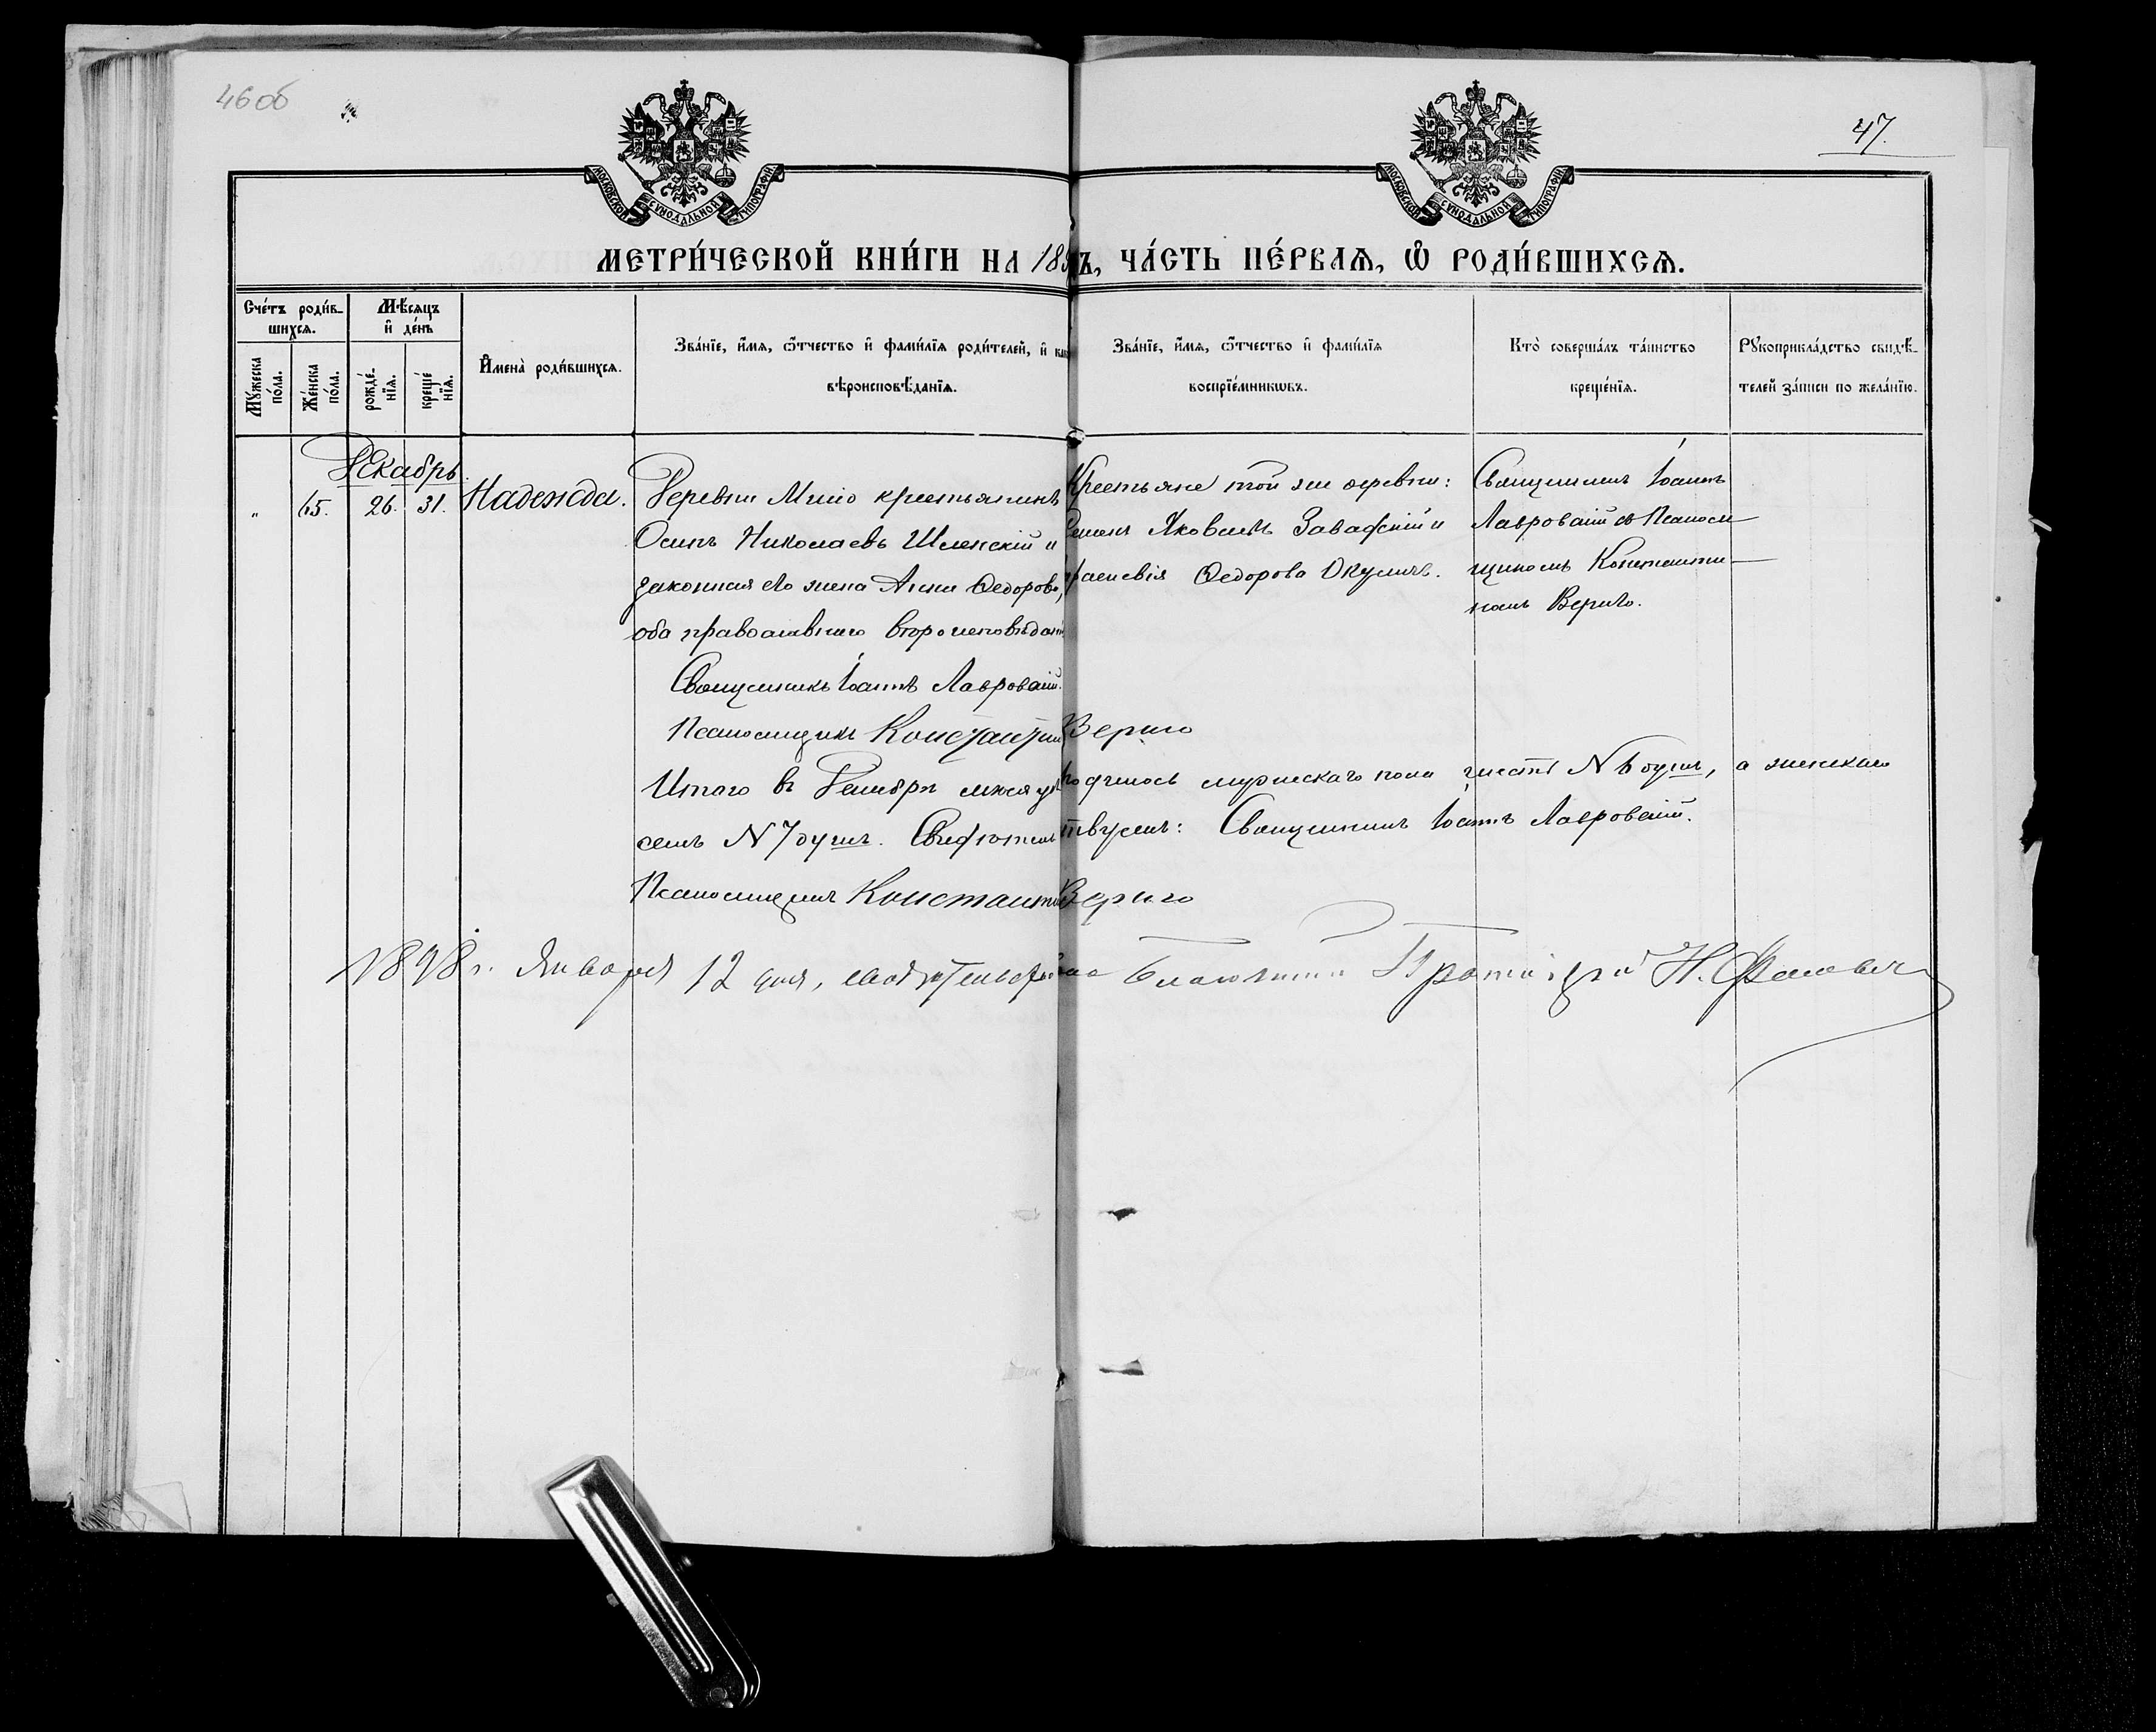 46об
47.
МОСКОВСКОЙ СѴНОДАЛЬНОЙ ТИПОГРАФІИ
МОСКОВСКОЙ СѴНОДАЛЬНОЙ ТИПОГРАФІИ
МЕТРИ́ЧЕСКОЙ КНИ́ГИ НА 189 Ъ, ЧА́СТЬ ПЕ́РВАѦ, Ѡ҆ РОДИ́ВШИХСѦ.
Сче́тъ роди́в-
шихсѧ.
Мѣ́сѧцъ
и҆ де́нь
Мꙋ́жеска по́ла.
Же́нска по́ла.
рожде́-нїѧ.
креще́нїѧ.
И҆мена̀ роди́вшихсѧ.
Зва́нїе, и҆́мѧ, ѻ҆́тчество и҆ фами́лїѧ роди́телей, и҆ как
вѣроисповѣ́данїѧ.
Зва́нїе, и҆́мѧ, ѻ҆́тчество и҆ фами́лїѧ
воспрїе́мникѡвъ.
Кто̀ соверша́лъ та́инство
креще́нїѧ.
Рꙋкоприкла́дство свидѣ́-
телей за́писи по жела́нїю.
Декабрь.
„ 65. 26. 31. Надежда.
Деревни крестьянинъ
Осипъ Николаевъ и
законная его жена Анна Ѳедорова,
оба православнаго вѣроисповѣдан
Крестьяне той же деревни:
Яковлевъ и
Ѳедорова Окуличъ.
Священникъ Іоаннъ
Лавровскій съ Псалом-
щикомъ Константи-
номъ Вериго.
Священникъ Іоаннъ Лавровскій.
Псаломщикъ Константин Вериго
Итого въ Декабрѣ мѣсяцѣ родилось мужескаго пола шесть N 6 душъ, а женскаго
семь N 7 душъ. Свидѣтельствуемъ: Священникъ Іоаннъ Лавровскій.
Псаломщикъ Константин Вериго
1898 г. Января 12 дня, Протоіерей Н.